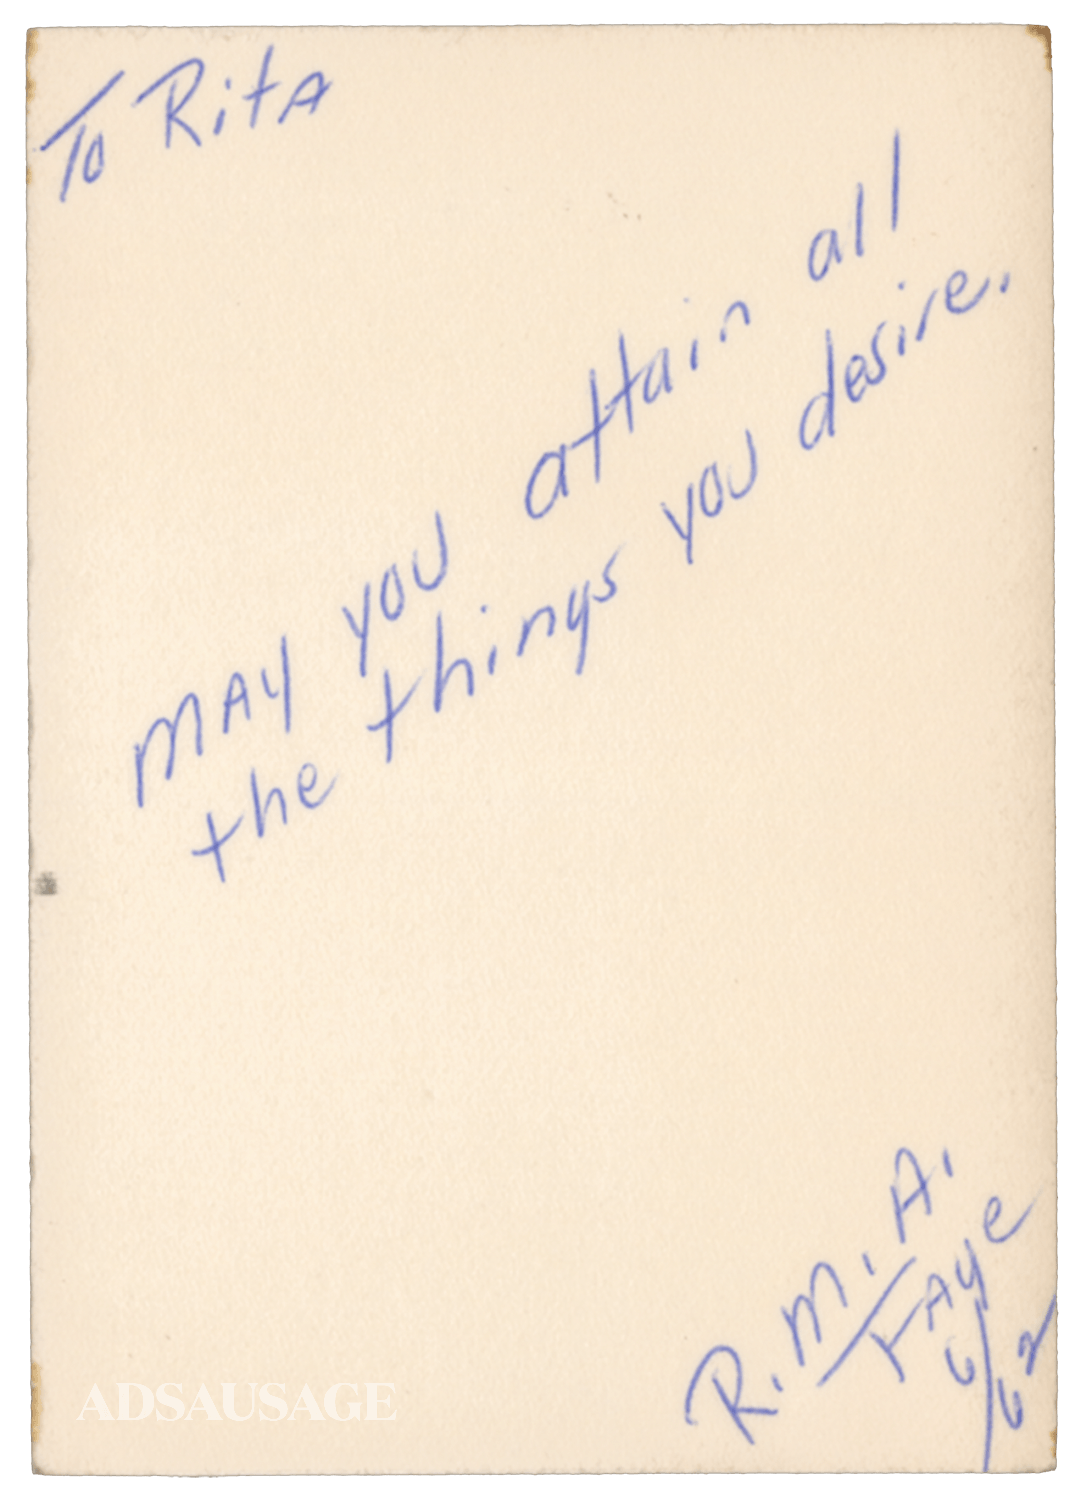 To Rita
may you attain all
the things you desire.
R.M.A.
Faye
6/62
ADSAUSAGE